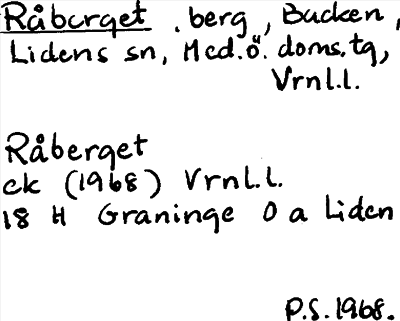 Råberget , berg , Backen ,
Lidens sn, Med.ö. doms.tg,
Vrnl.l.
Råberget
ek (1968) Vrnl.l.
18 H Graninge O a Liden
P.S. 1968.